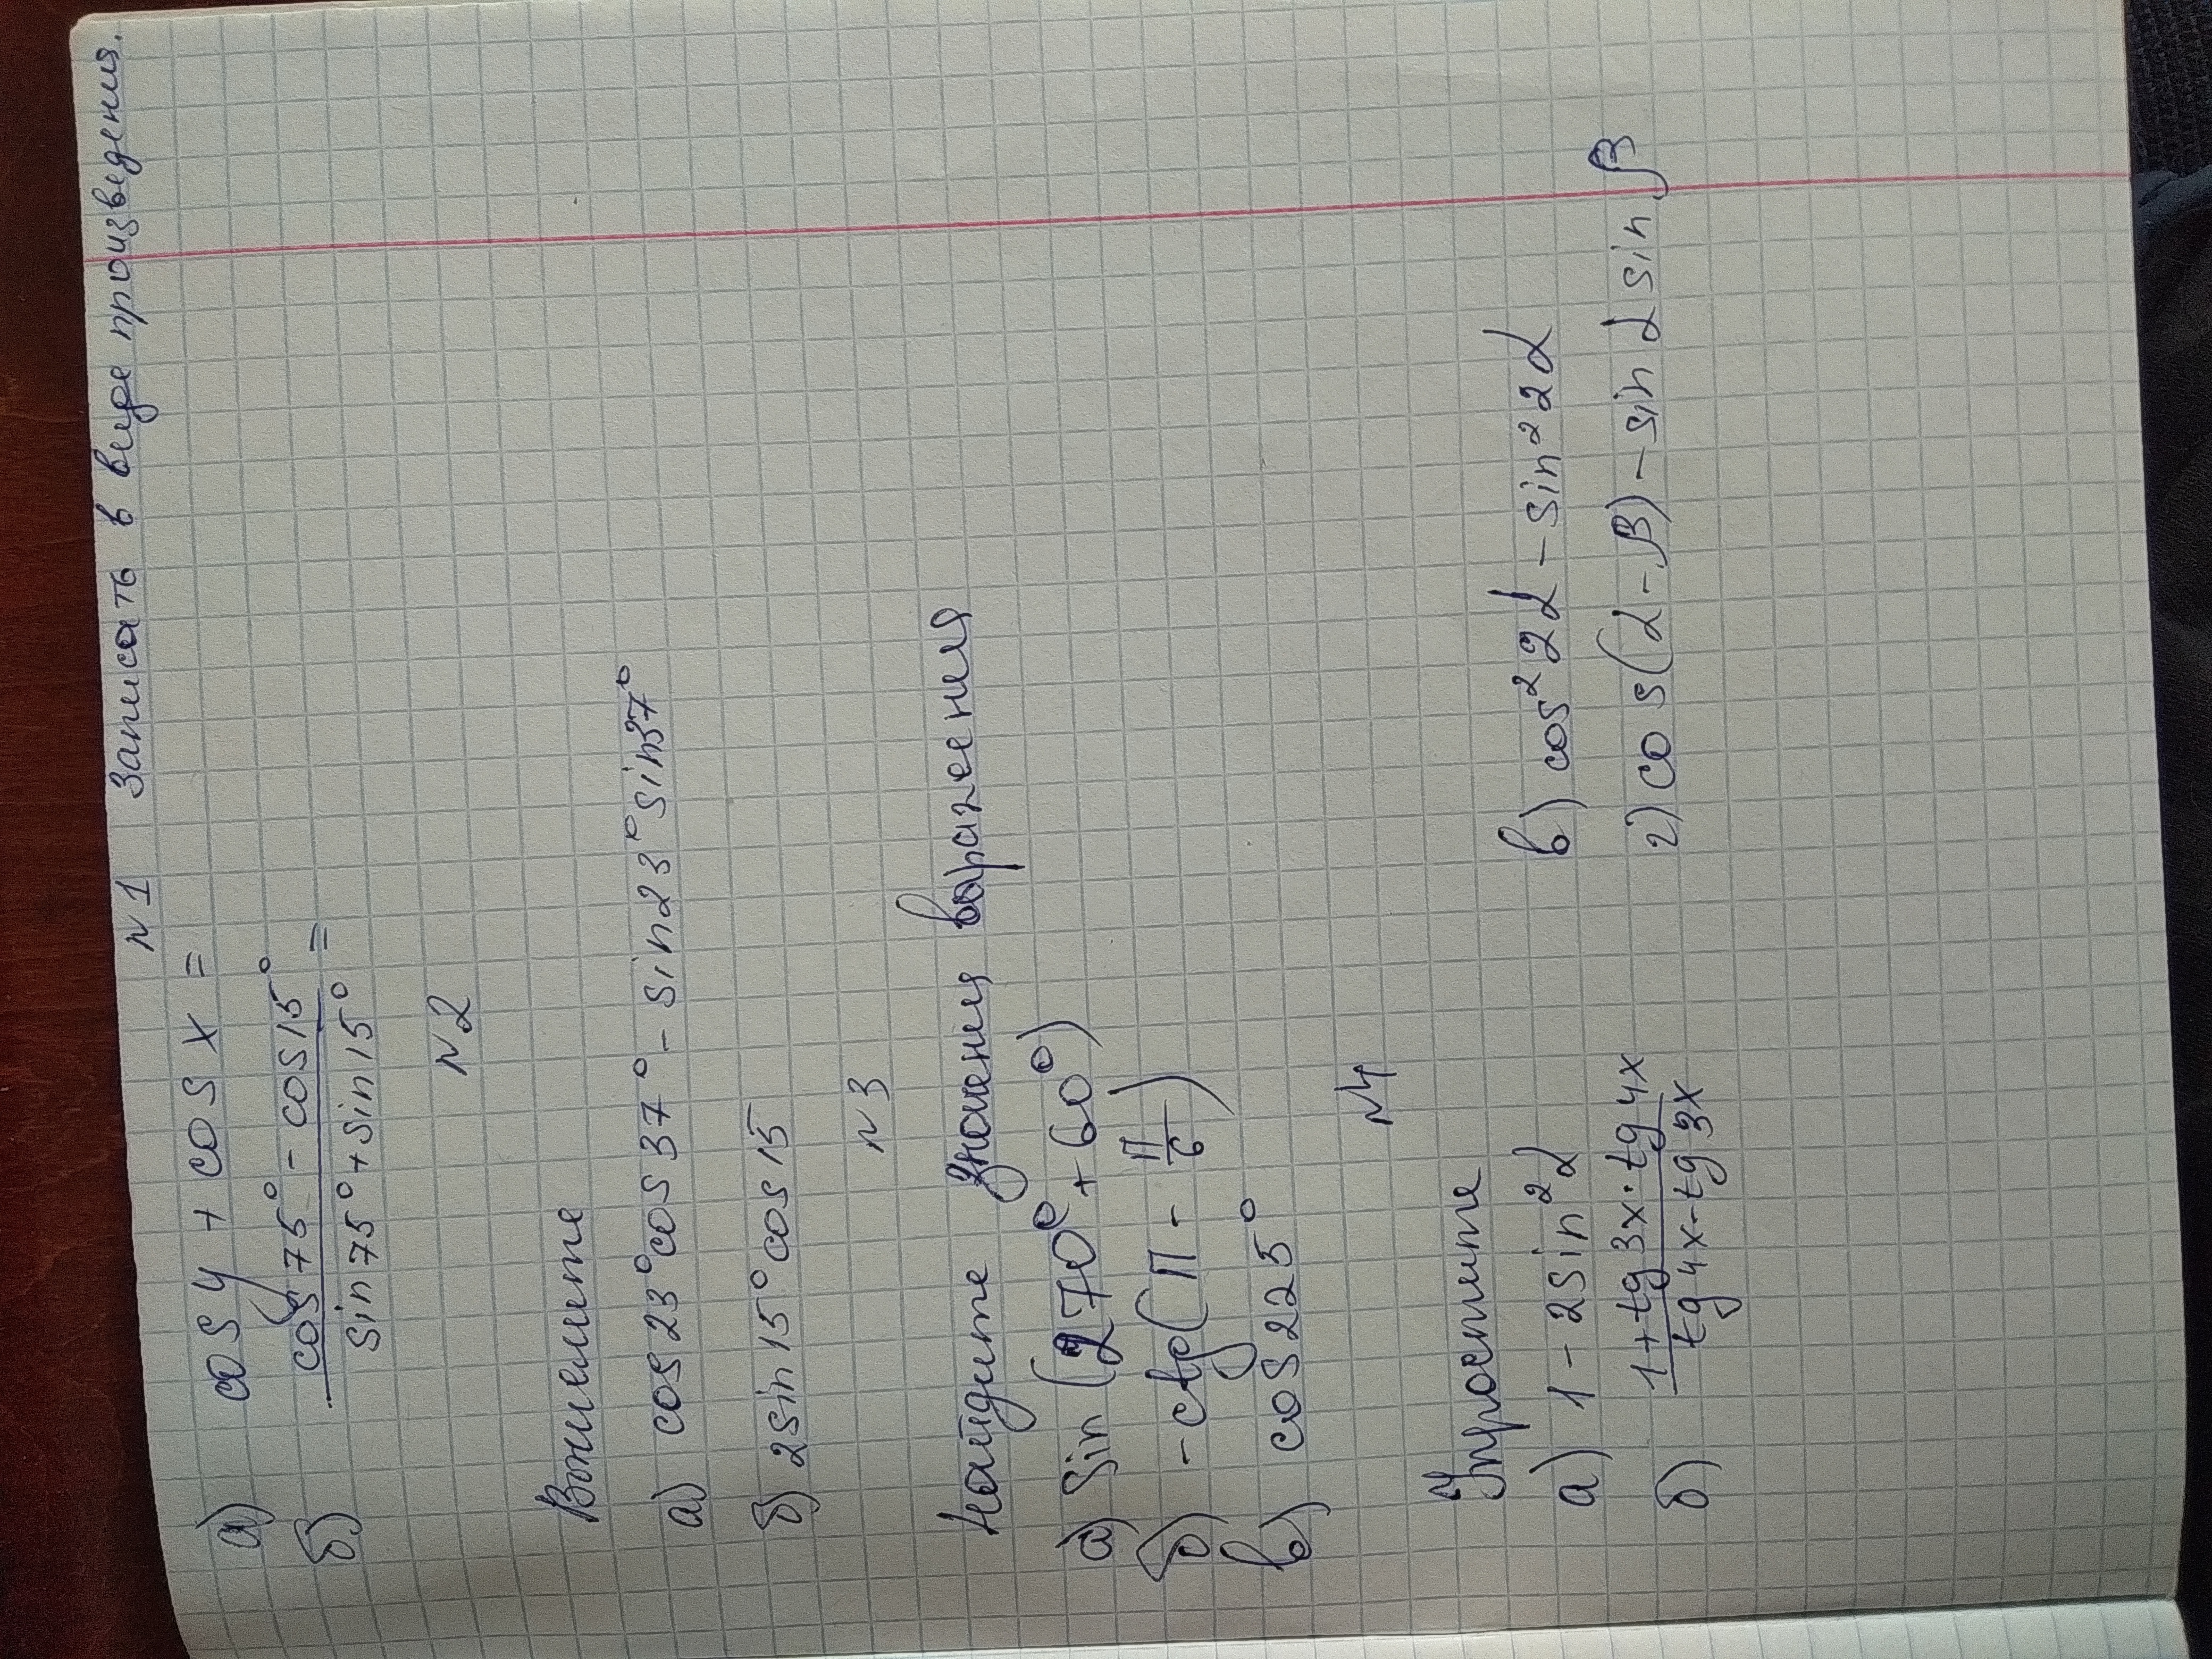 N1 Записать в виде произведения.
а) cos y + cos x =
б) \frac{cos 75° - cos 15°}{sin 75° + sin 15°} =
N2
Вычислите
а) cos 23° cos 37° - sin 23° sin 37°
б) 2 sin 15° cos 15
N3
Найдите значения выражения
а) sin (270° + 60°)
б) - ctg (π - \frac{π}{6})
в) cos 225°
N4
Упростите
а) 1 - 2 sin² α в) cos² 2α - sin² 2α
б) \frac{1 + tg 3x · tg 4x}{tg 4x - tg 3x} г) cos (α - β) - sin α sin β